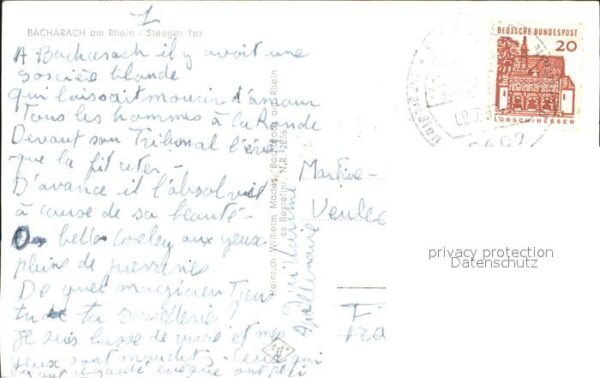 1
BACHARACH am Rhein - Steeger Tor
A Bacharach il y avait une
sorcière blonde
qui laissait mourir d'amour
Tous les hommes à la Ronde
Devant son Tribunal l'évê
que la fit citer -
D'avance il l'absolvit
à cause de sa beauté -
O belle Loreley aux yeux
pleins de pierreries
De quel magicien Tiens
tu ta sorcellerie ?
Je suis lasse de vivre et mes
yeux sont maudits - Ceux qui
m'ont regardé évêque ont péri
Guillaume
Apollinaire
Heinrich Wilhelm Modas, Bacharach am Rhein
Bestellnr. N.R. 12836
Martine -
Veules
Fra
DEUTSCHE BUNDESPOST
20
LORSCH/HESSEN
privacy protection
Datenschutz